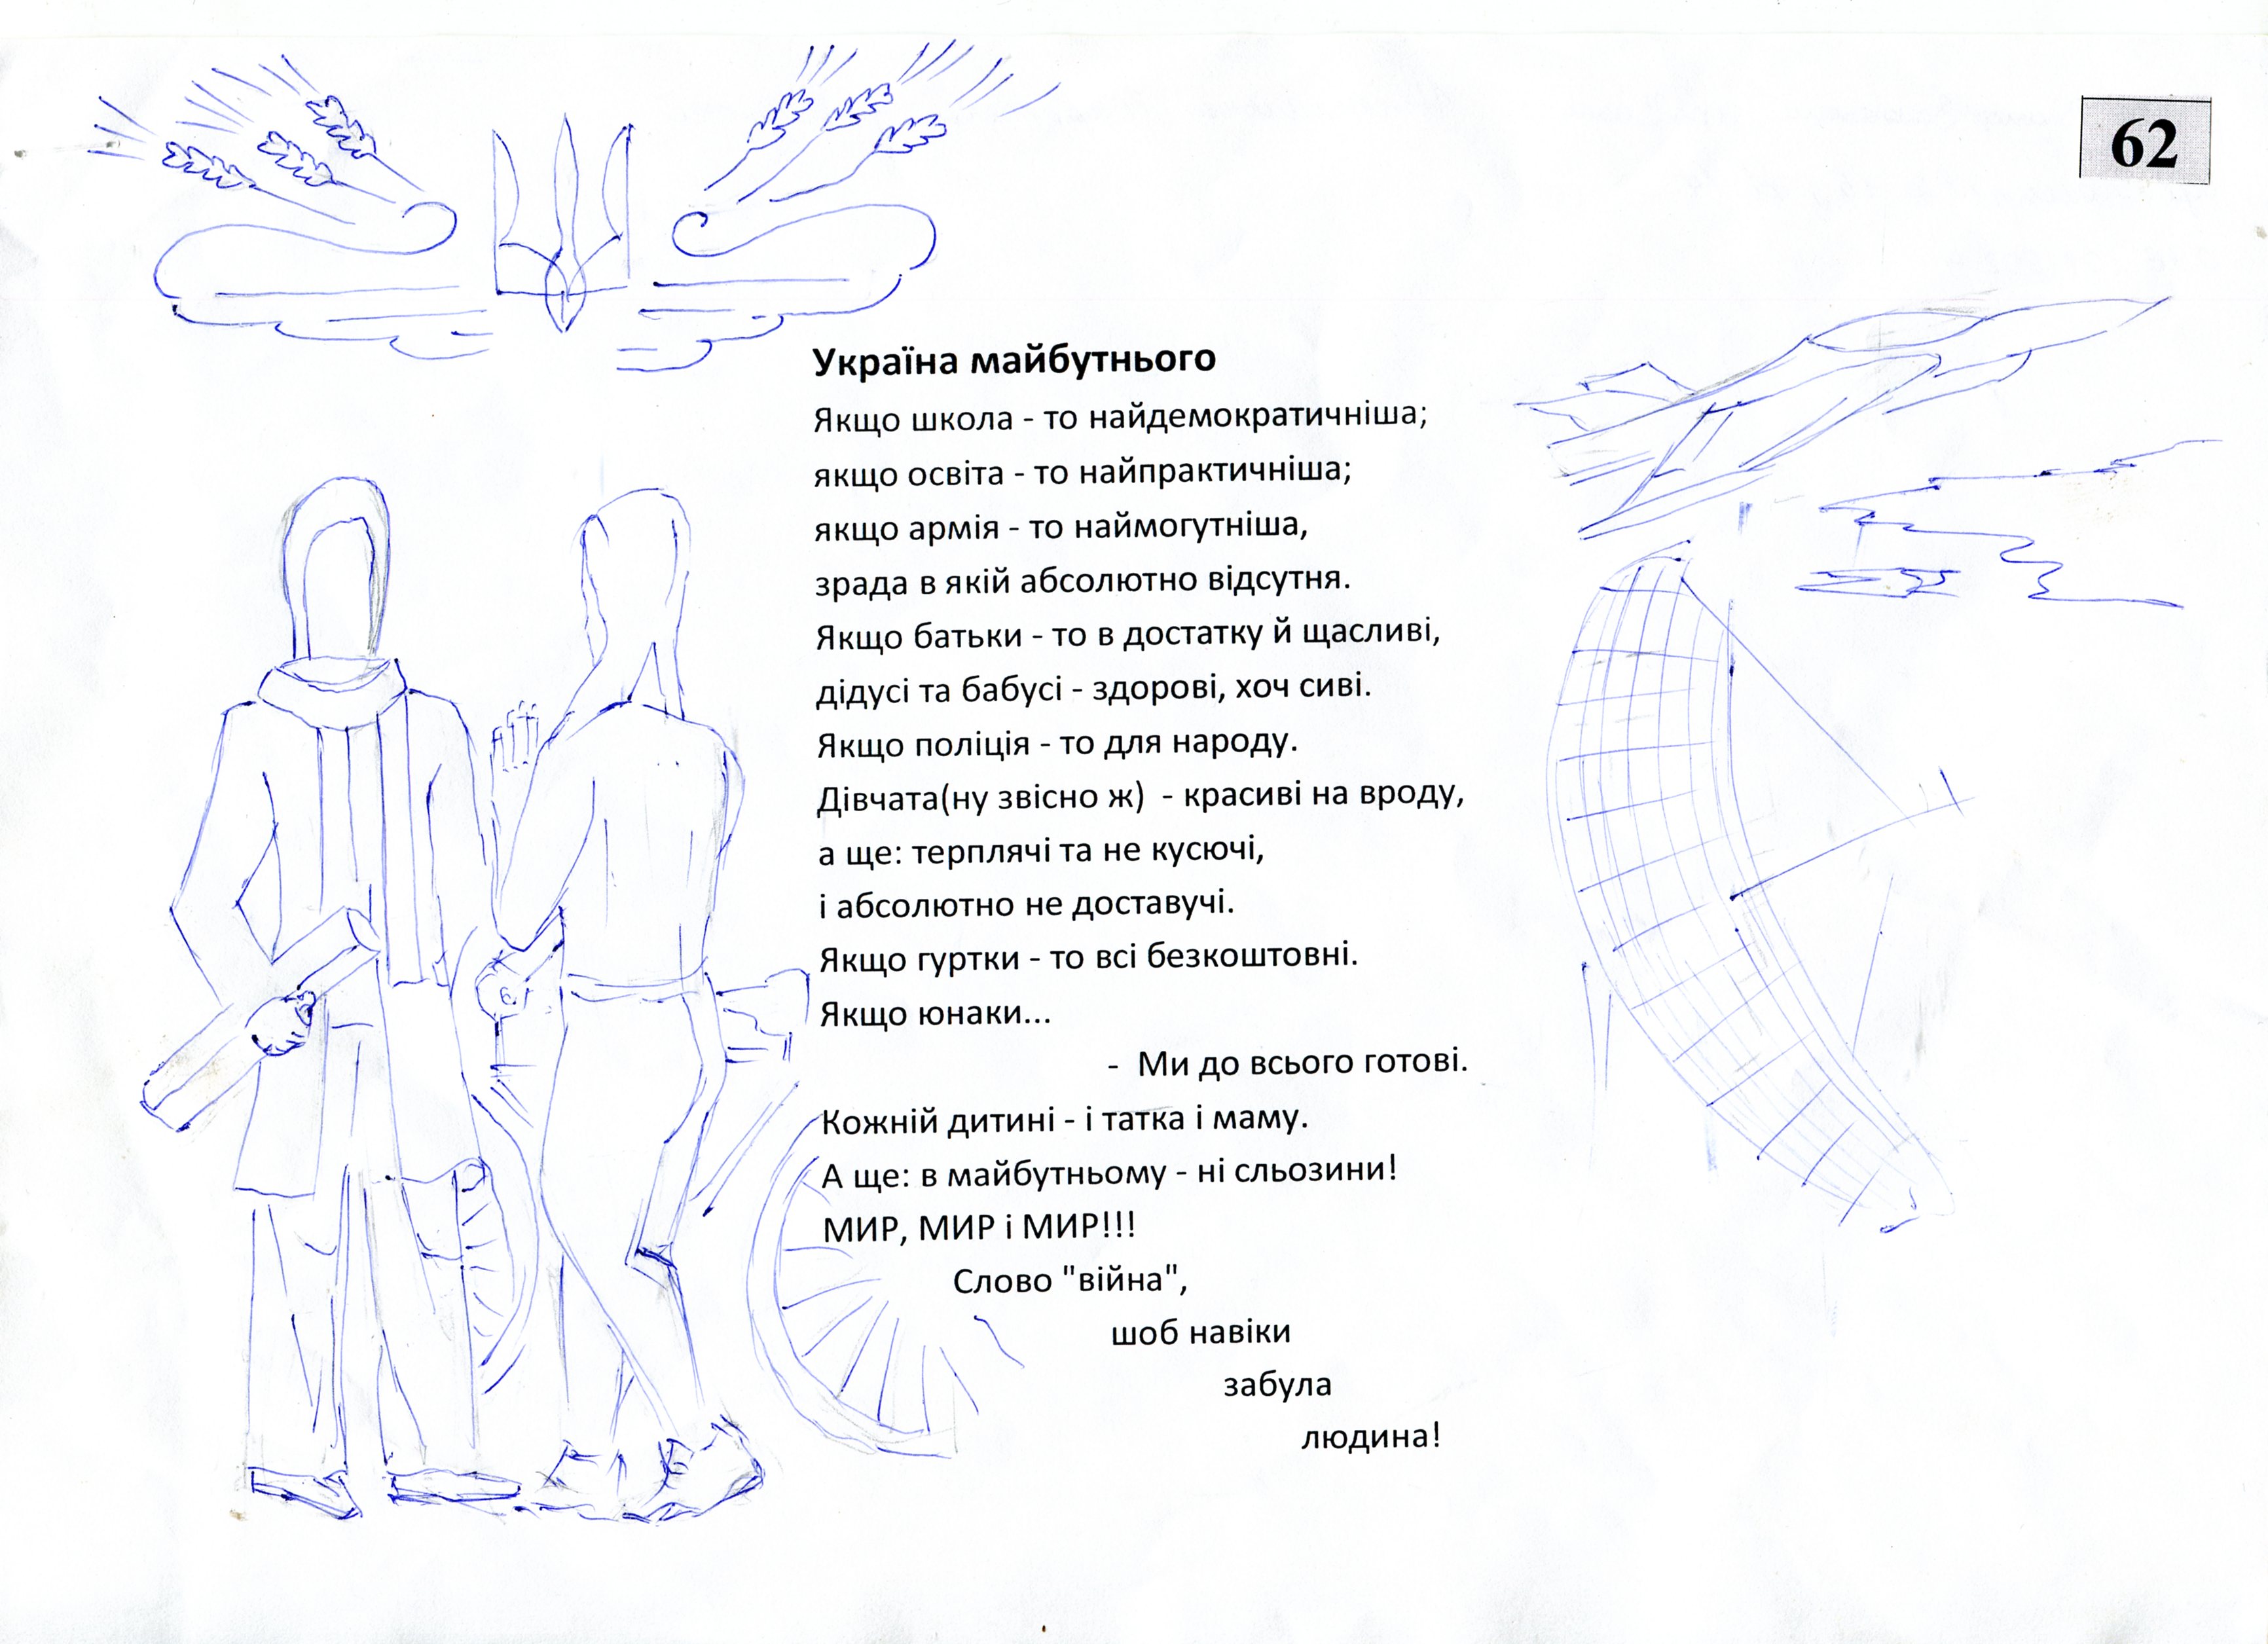 62
Україна майбутнього
Якщо школа - то найдемократичніша;
якщо освіта - то найпрактичніша;
якщо армія - то наймогутніша,
зрада в якій абсолютно відсутня.
Якщо батьки - то в достатку й щасливі,
дідусі та бабусі - здорові, хоч сиві.
Якщо поліція - то для народу.
Дівчата(ну звісно ж)  - красиві на вроду,
а ще: терплячі та не кусючі,
і абсолютно не доставучі.
Якщо гуртки - то всі безкоштовні.
Якщо юнаки...
-  Ми до всього готові.
Кожній дитині - і татка і маму.
А ще: в майбутньому - ні сльозини!
МИР, МИР і МИР!!!
Слово "війна",
шоб навіки
забула
людина!